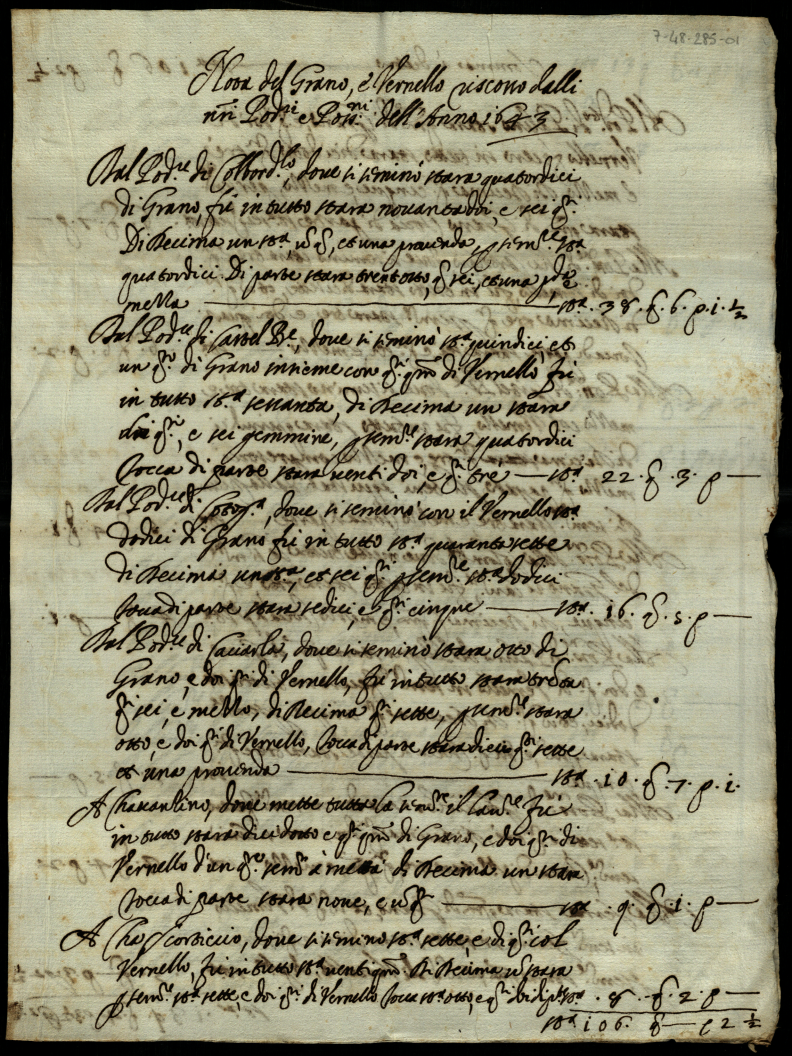 7-48-285-01
Nota del Grano, è Vernello riscosso dalli
nri Podri e Possni dell'Anno 1643
Dal Podre di Colbordlo, dove si seminò stara quatordici
di Grano, fù in tutto stara novantadoi, e sei qri
Di Decima un stro, un qro, et una provenda, p seme stra
quatordici. Di parte stara trentotto, qri sei, et una pda e
mezza — stra 38. q. 6. p. 1. ½
Dal Podre di Castel Bo, dove si seminò stra quindici, et
un qro di Grano insieme con qri qtro di Vernello, fù
in tutto stra settanta, di Decima un stara
qri, e sei gemmine, p seme stara quatordici
Tocca di parte stara venti doi, e qri tré — stra 22. q. 3. p —
Dal Podre di, dove si seminò con il Vernello stra
dodici di Grano fù in tutto stra quaranta sette
di Decima un stro, et sei qri p seme stra dodici
Tocca di parte stara sedici, e qri cinque — stra. 16. q. 5. p —
Dal Podre di Caciarla, dove si seminò stara otto di
Grano, e doi qri di Vernello, fù in tutto stara trenta
qri sei, e mezzo, di Decima qri sette, p seme stara
otto, e doi qri di Vernello, Tocca di parte stara dieci qri sette
et una provenda — stra. 10. q. 7. p. 1.
A Chavanlino, dove mette tutto la seme il Lavre fù
in tutto stara dicidotto e qri qtro di Grano, e doi qri di
Vernello d'un qro seme à mettà di Decima un stara
Tocca di parte stara nove, e un qro — stra. 9. q. 1. p —
A Cha Scorticcio, dove si seminò stra sette, e di qri col
Vernello, fù in tutto stra venti qtro. Di Decima un stara
p seme stra sette, e doi qri di Vernello Tocca stra otto, e qri doi di pte stra. 8. q. 2. p —
stra 106. q — p 2 ½